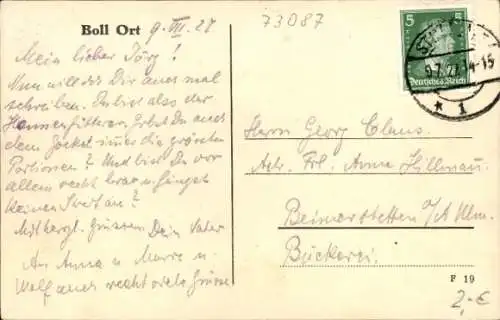 Boll Ort 9. VII. 27
73087
Mein lieber Jörg!
Nun will ich Dir auch mal
schreiben. Du bist also der
Hennenfütterer. Gibst Du auch
dem Gockel immer die grössten
Portionen? Und bist Du vor
allem recht brav u. fängst
keinen Streit an?
Mit herzl. Grüssen Dein Vater
An Anna u. Marie u.
Wolf auch recht viele Grüsse
5
Deutsches Reich
9.7.27
14-15
* 1
Herrn Georg Claus.
Adr. Frl. Anna Hüllmau
Beimerstetten O/A Ulm.
Bäckerei.
F 19
2,-€